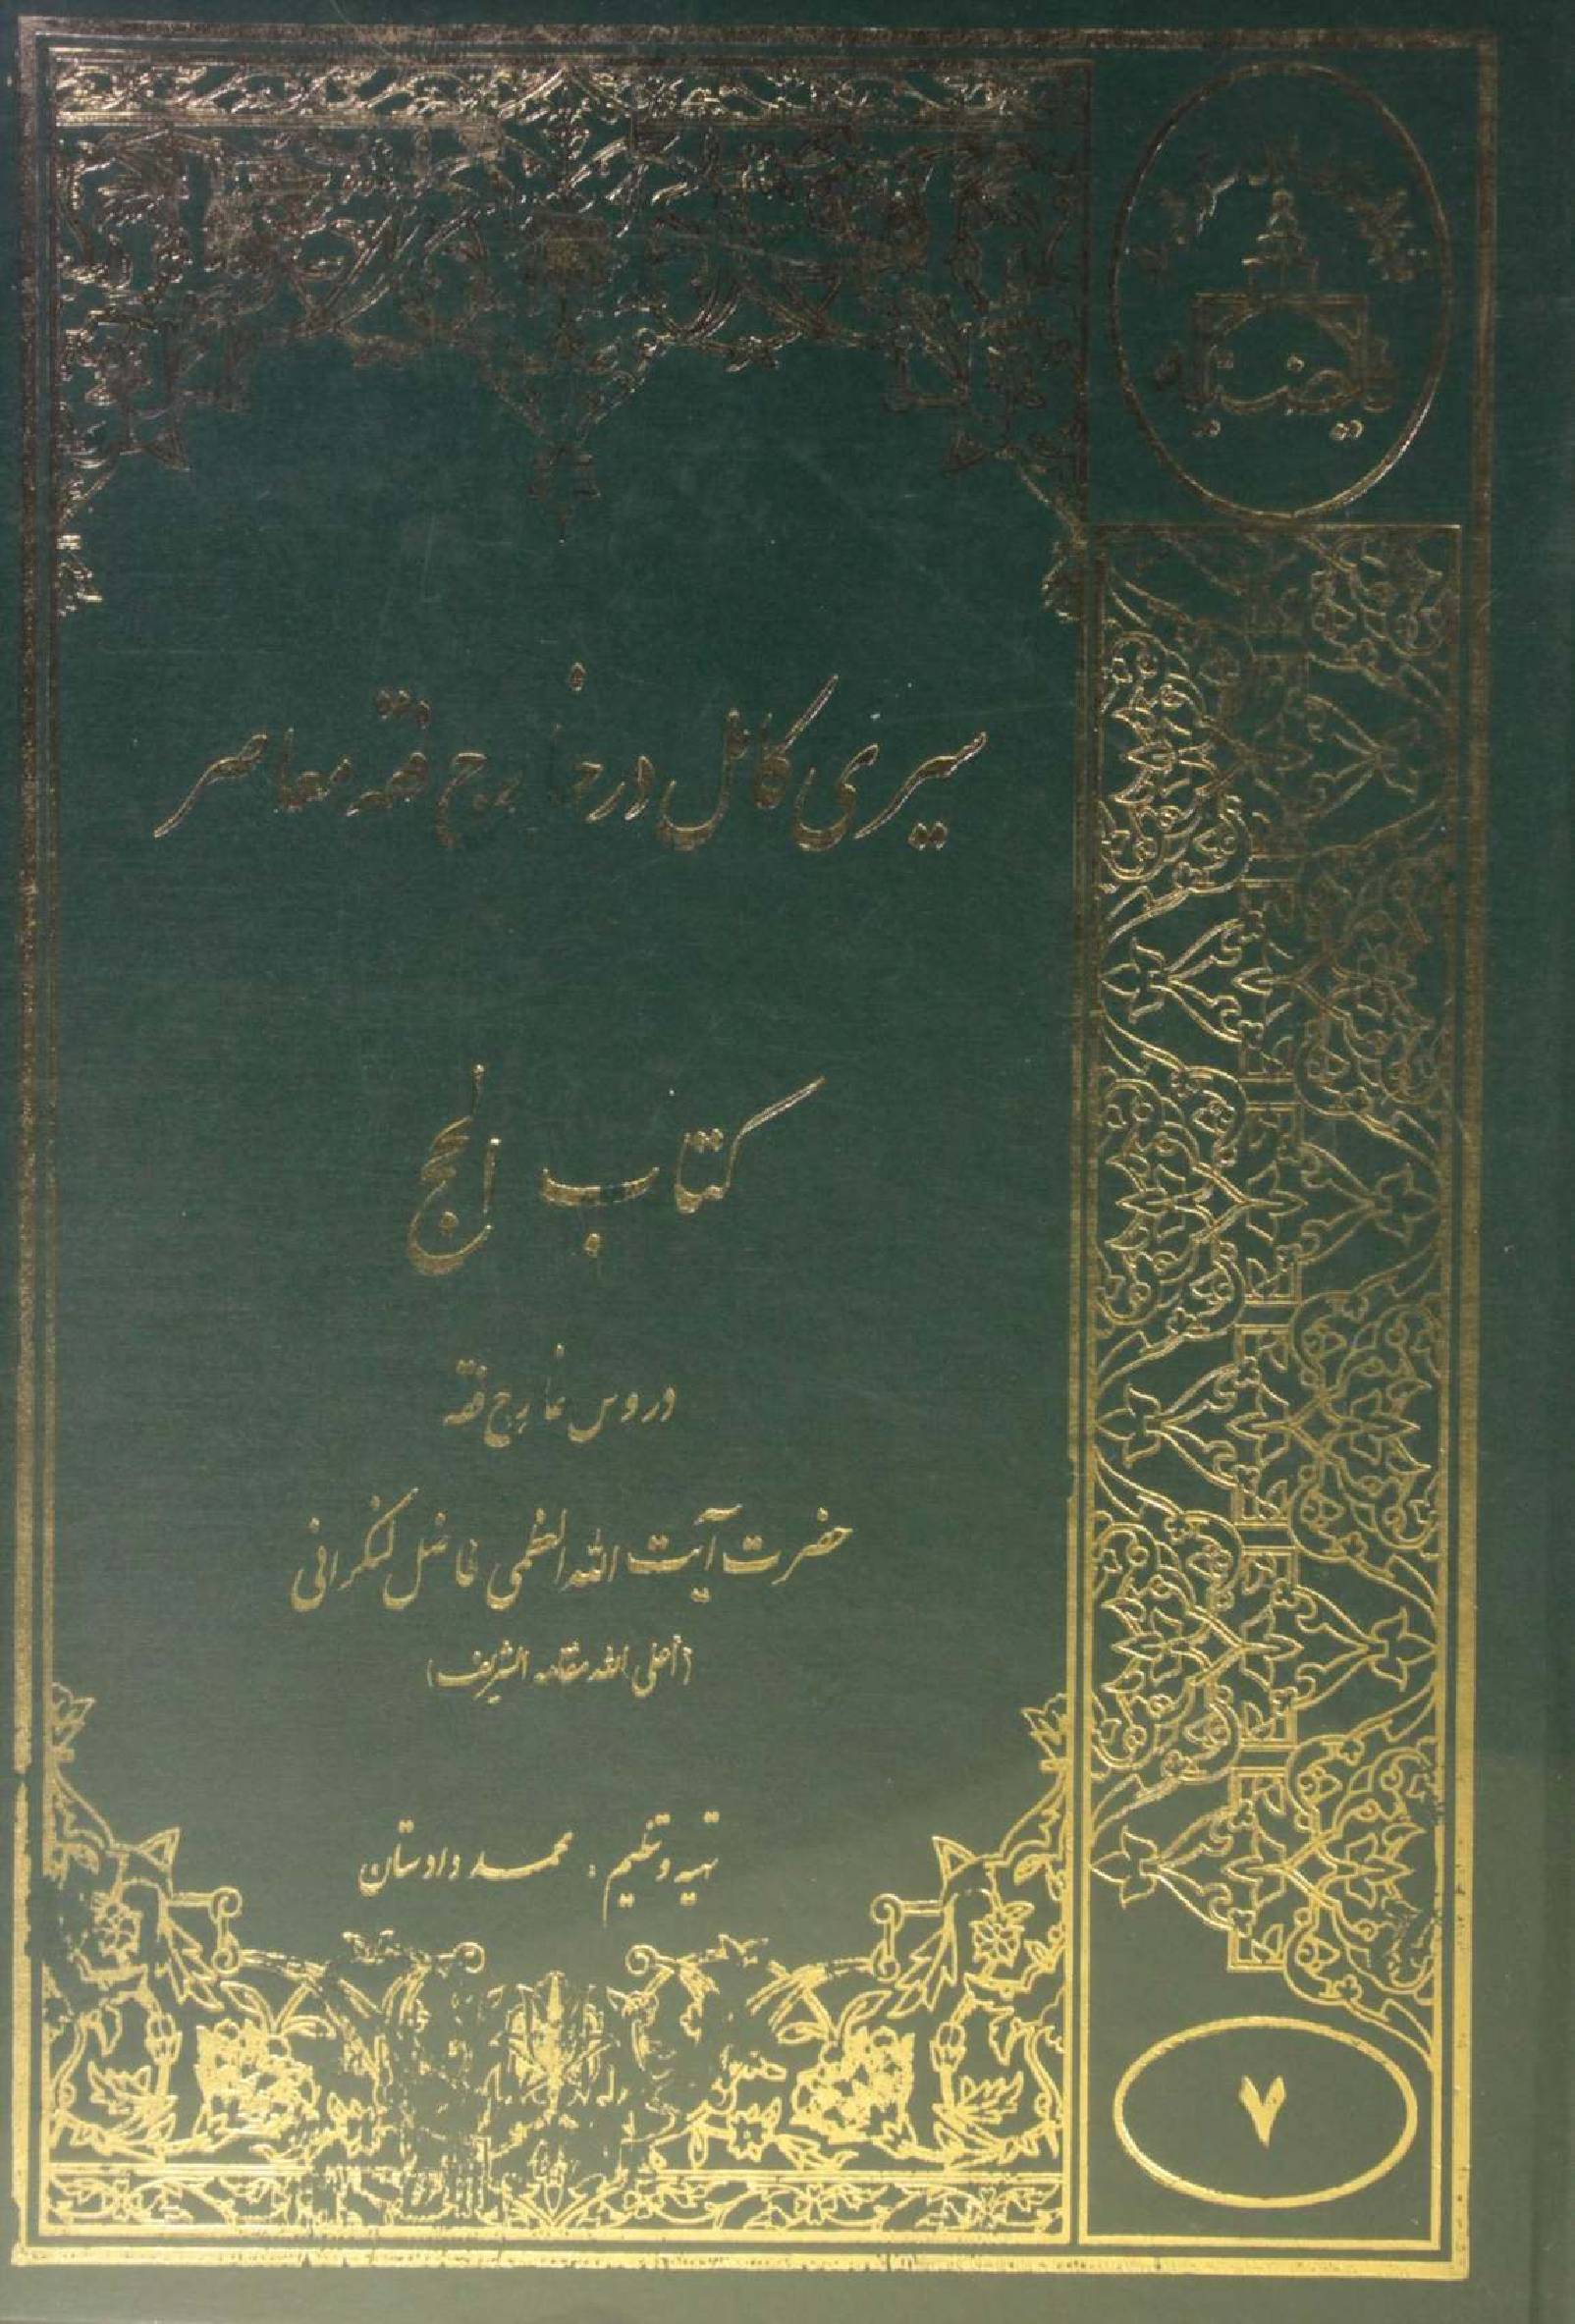 سیری کامل در خارج فقه معاصر
کتاب الحج
دروس خارج فقه
حضرت آیت الله العظمی فاضل لنکرانی
(أعلی الله مقامه الشریف)
تهیه و تنظیم: محمد دادستان
فیضیه
۷